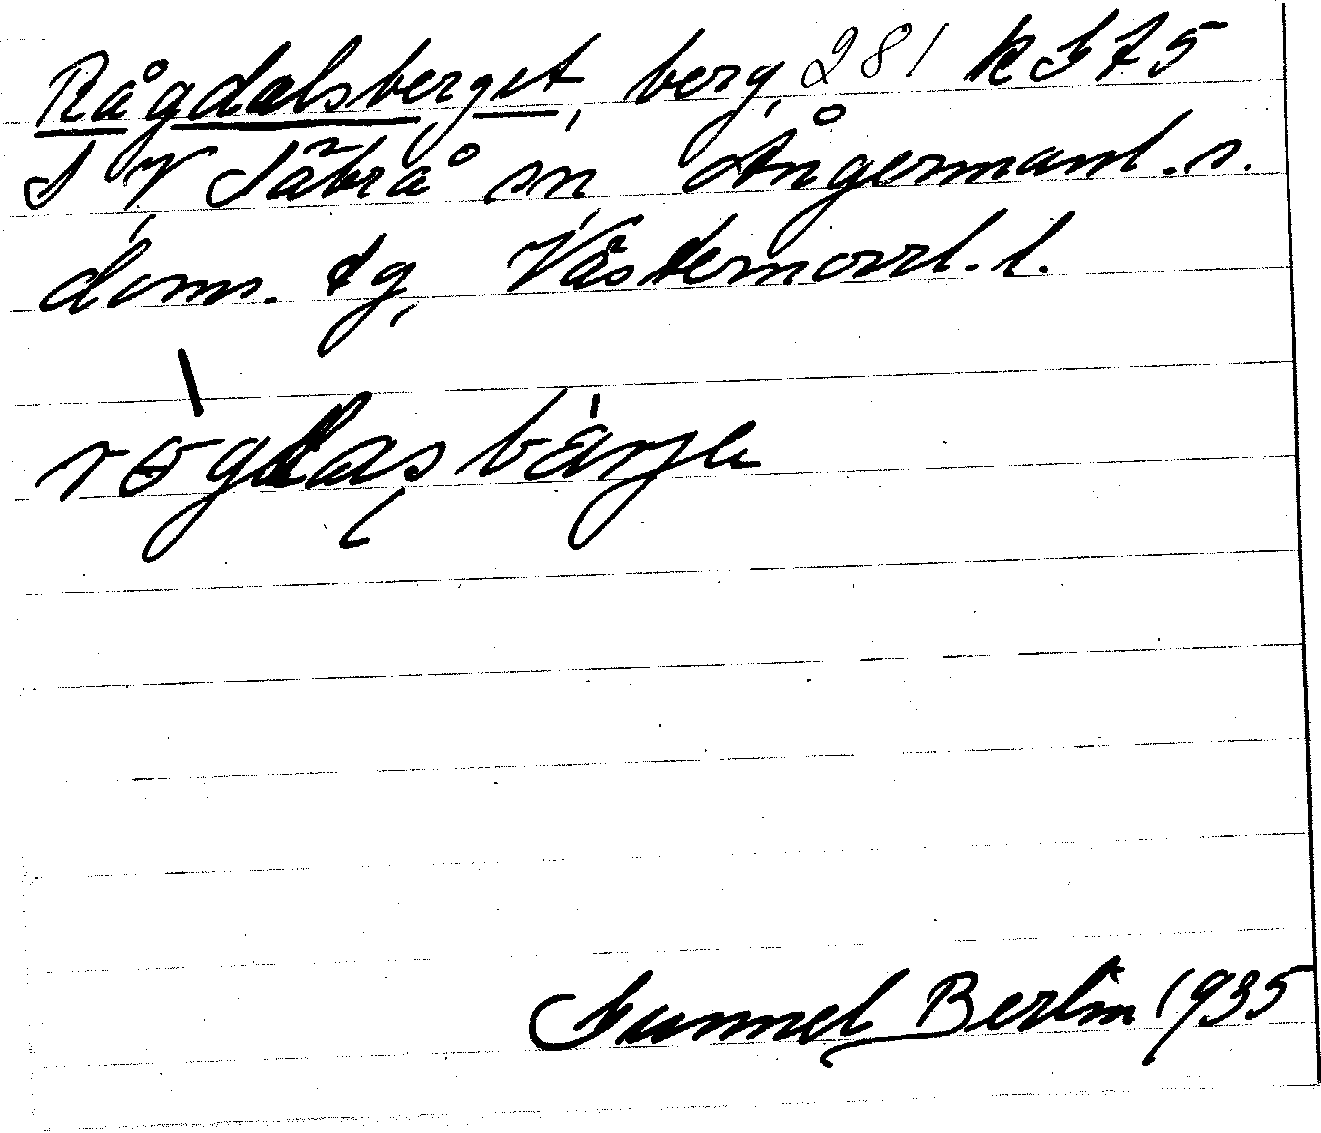 Rågdalsberget, berg, 281 k 375
i V Säbrå sn Ångermanl. s.
doms. tg, Västernorrl. l.
rögdasbärje
Gunnel Berlin 1935